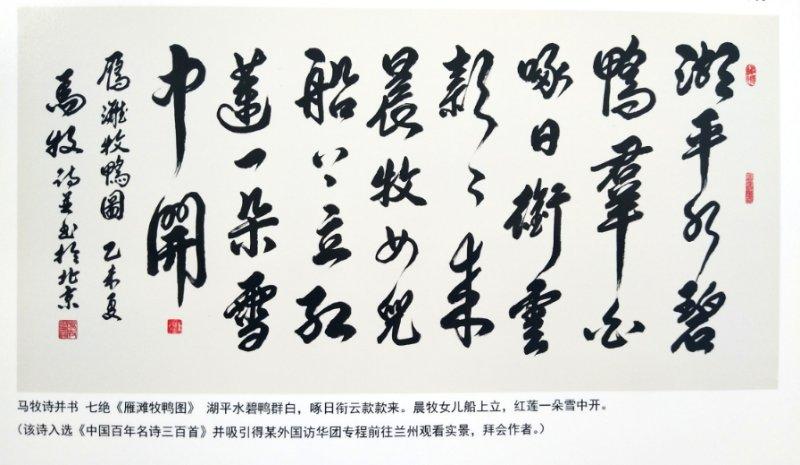 湖平水碧
鴨羣白
啄日銜雲
款々来
晨牧女兒
船上立红
蓮一朵雪
中開
雁灘牧鴨圖 乙未夏
馬牧诗並书於北京
马牧诗并书 七绝《雁滩牧鸭图》 湖平水碧鸭群白，啄日衔云款款来。晨牧女儿船上立，红莲一朵雪中开。
（该诗入选《中国百年名诗三百首》并吸引得某外国访华团专程前往兰州观看实景，拜会作者。）